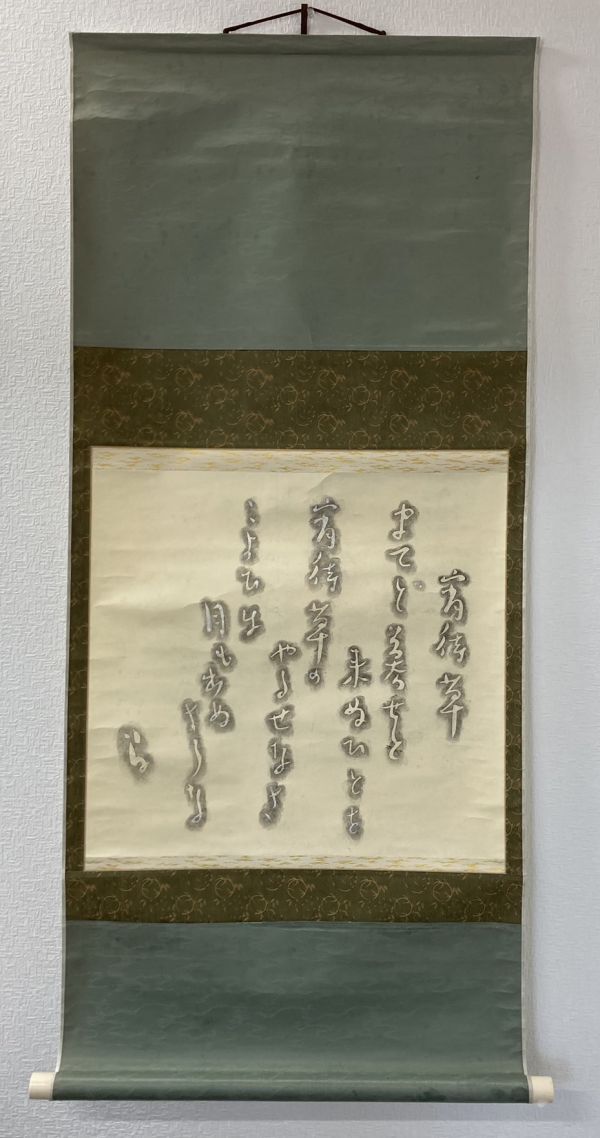 宵待草
まてど暮せど
来ぬひとを
宵待草の
やるせなさ
こよひは
月も出ぬ
さうな